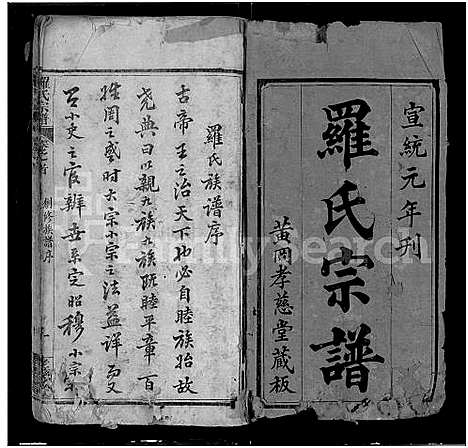 宣統元年刋
羅氏宗譜
黄岡孝慈堂藏板
羅氏族谱序
古帝王之治天下也必自睦族始故
尭典曰以親九族九族既睦平章百
姓周之盛时大宗小宗之法益详而又
召小史之官辨世系定昭穆小宗
羅氏宗譜
創修族譜序
FamilySearch